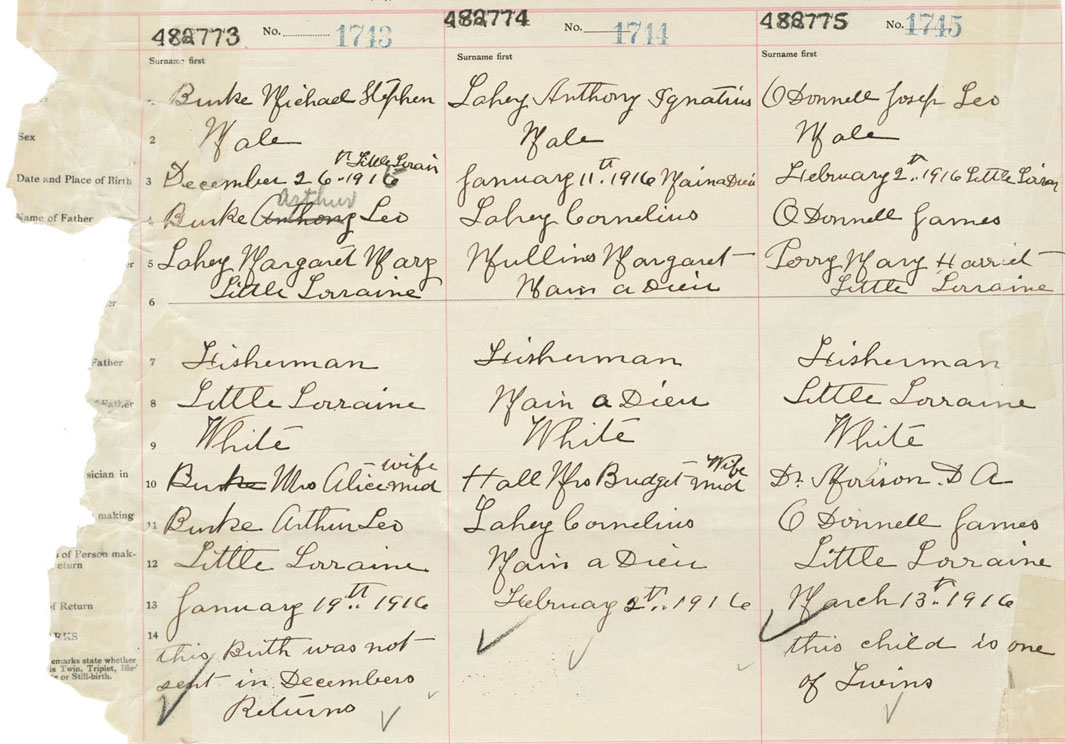 482773 No. 1743
Surname first
Burke Michael Stephen
2
Male
th Little Lorain
3 December 26 - 1916
Arthur
4 Burke Anthony Leo
5 Lahey Margaret Mary
Little Lorraine
6
7 Fisherman
8 Little Lorraine
9 White
wife
10 Burke Mrs Alice mid
11 Burke Arthur Leo
12 Little Lorraine
13 January 19th 1916
14
this Birth was not
sent in Decembers
Returns
482774 No. 1744
Surname first
Lahey Anthony Ignatius
Male
January 11th. 1916 Mainadieu
Lahey Cornelius
Mullins Margaret
Main a Dieu
Fisherman
Main a Dieu
White
Wife
Hall Mrs Bridget mid
Lahey Cornelius
Main a Dieu
February 2th. 1916
482775 No. 1745
Surname first
O Donnell Josep Leo
Male
February 2th. 1916 Little Lorran
O Donnell James
Perry Mary Harriet
Little Lorraine
Fisherman
Little Lorraine
White
Dr. D A
O Donnell James
Little Lorraine
March 13th. 1916
this child is one
of Twins
Sex
Date and Place of Birth
Name of Father
er
er
Father
Father
sician in
making
of Person mak-
eturn
f Return
RKS
emarks state whether
is Twin, Triplet, Ille-
or Still-birth.